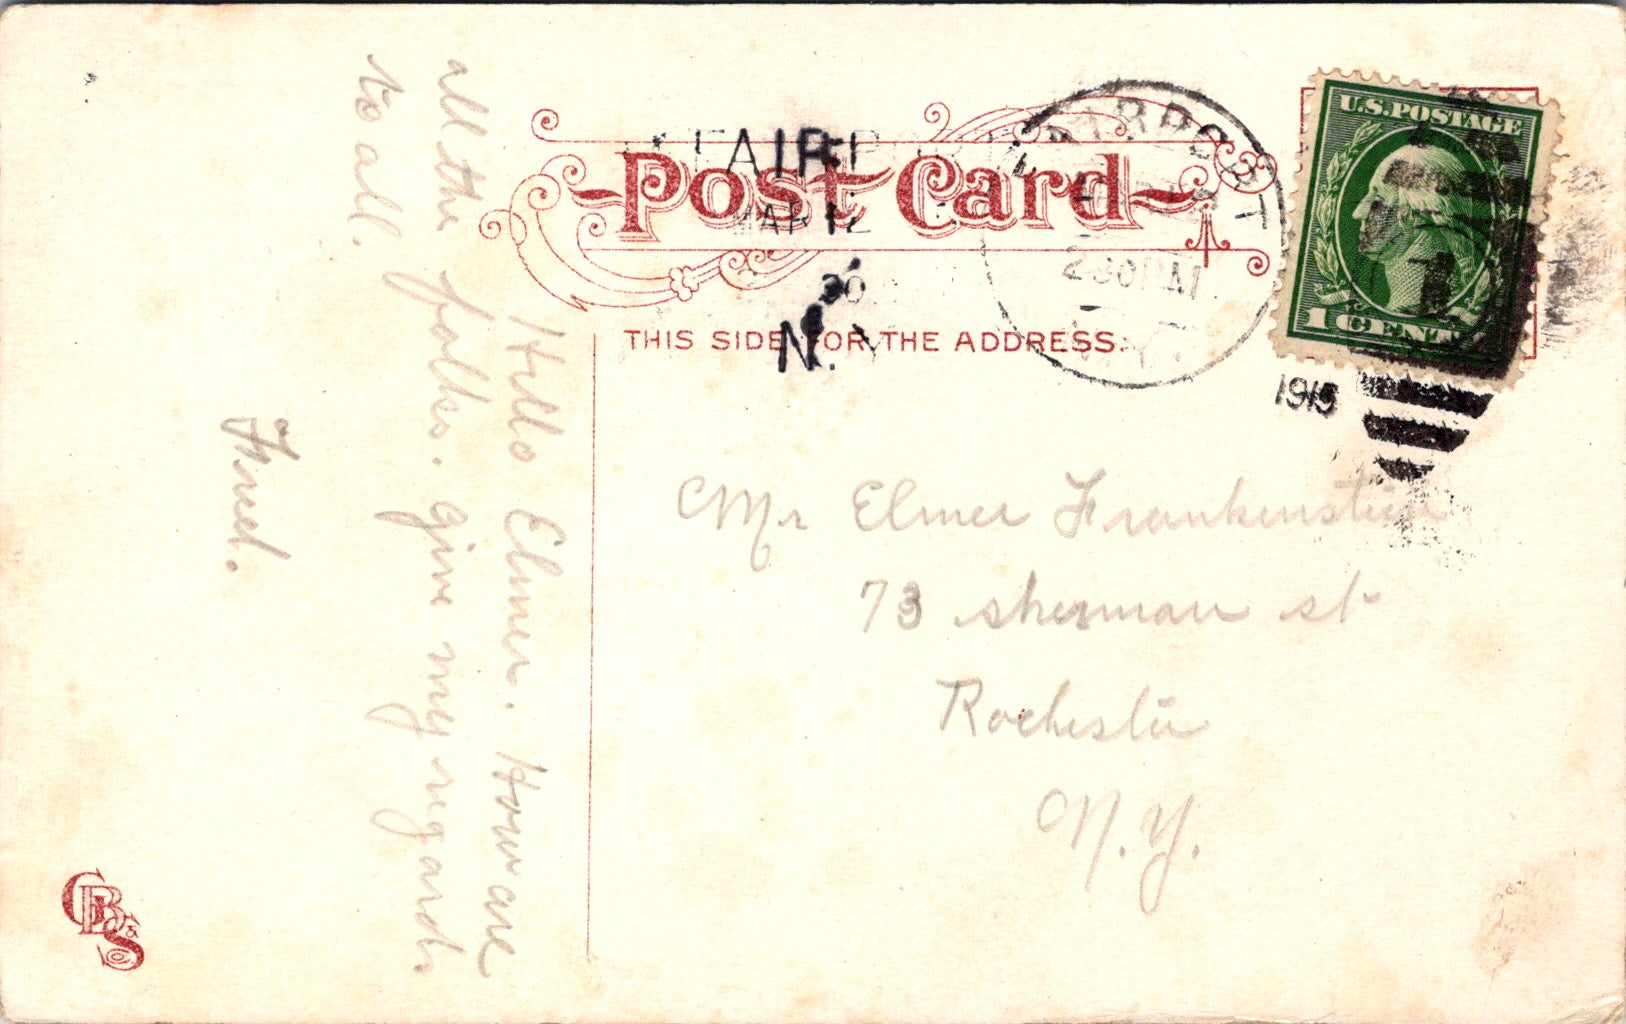 Post Card
THIS SIDE FOR THE ADDRESS.
FAIRPORT
MAR 12
30
N.Y.
FAIRPORT
230PM
N.Y.
1915
U.S. POSTAGE
1 CENT
Hello Elmer. How are
all the folks. give my regards
to all.
Fred.
Mr Elmer Frankenstein
73 sherman st
Rochester
N.Y.